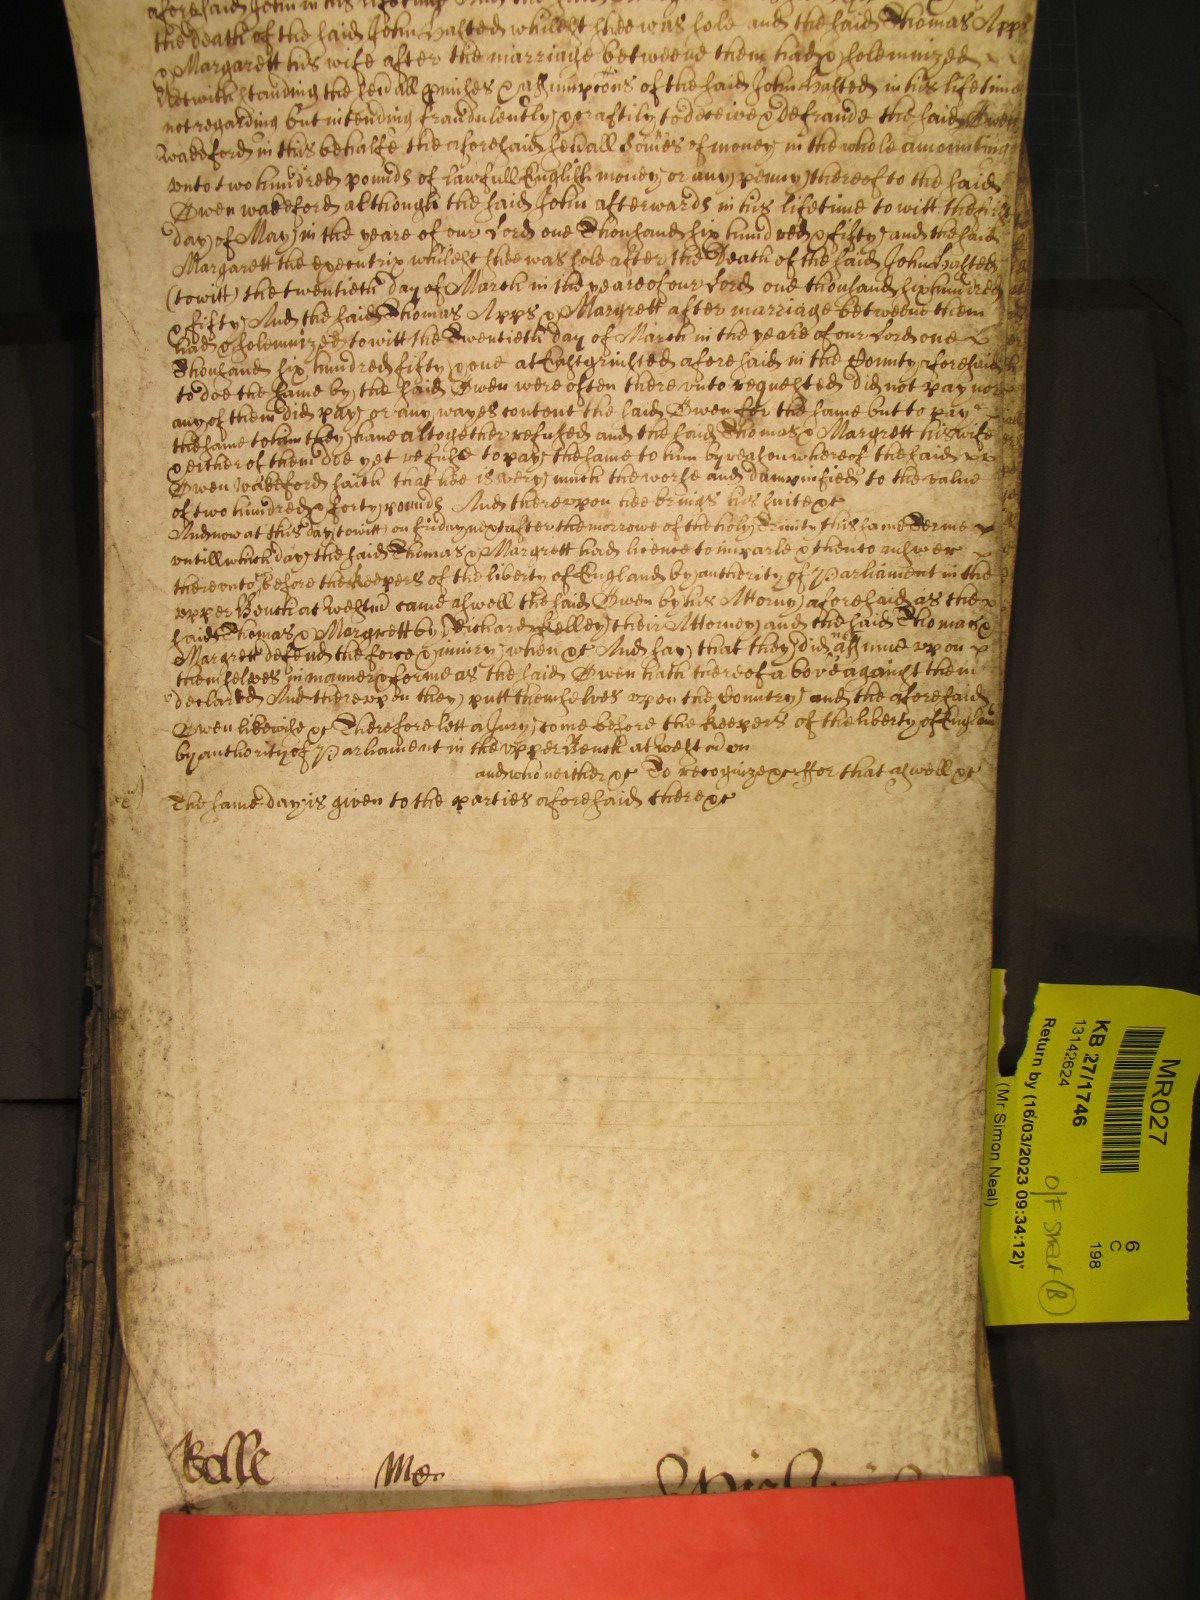 aforesaid John in his lifetime And the said
the death of the said John Halsted whilest shee was sole and the said Thomas Apps
& Margarett his wife after the marriage betweene them had & solemnized
Notwithstanding the sevall pmises & assumpcons of the said John Halsted in his lifetime
not regarding but intending fraudulently & craftily to deceive & defraude the said Owen
Wakeford in this behalfe the aforesaid sevall somes of money in the whole amounting
unto two hundred pounds of lawfull English money or any penny thereof to the said
Owen Wakeford although the said John afterwards in his lifetime to witt the first
day of May in the yeare of our Lord one Thousand six hundred & fifty and the said
Margarett the executrix whilest shee was sole after the Death of the said John Halsted
(to witt) the twentieth day of March in the yeare of our Lord one thousand six hundred
& fifty And the said Thomas Apps & Margrett after marriage betweene them
had & solemnized to witt the Twentieth day of March in the yeare of our Lord one
Thousand six hundred fifty & one at Eastgrinsted aforesaid in the County aforesaid
to doe the same by the said Owen were often there unto requested did not pay nor
any of them did pay or any wayes content the said Owen for the same but to pay
the same to him they have altogether refused and the said Thomas & Margrett his wife
& either of them doe yet refuse to pay the same to him by reason whereof the said
Owen Wakeford saith that hee is very much the worse and damnified to the value
of two hundred & forty pounds And thereupon hee brings his suite &c
And now at this day to witt on Friday next after the morrowe of the holy Trinity this same Terme
untill which day the said Thomas & Margrett had licence to imparle & then to answer
thereunto before the keepers of the liberty of England by authority of Parliament in the
upper Bench at Westm came aswell the said Owen by his Attorny aforesaid as the
said Thomas & Margrett by Richard Kelley their Attorney and the said Thomas &
Margrett defend the force & iniury when &c And say that they did not assume upon
themselves in manner & forme as the said Owen hath thereof above against them
declared And thereupon they putt themselves upon the Country and the aforesaid
Owen likewise &c Therefore lett a Jury come before the keepers of the liberty of England
by authority of Parliament in the upper Bench at Westm on
and who neither &c To recognize &c ffor that aswell &c
The same day is given to the parties aforesaid there &c
Rolle
MR027
KB 27/1746
13142624
Return by (16/03/2023 09:34:12)'
(Mr Simon Neal)
6
C
198
O/F Shelf (B)